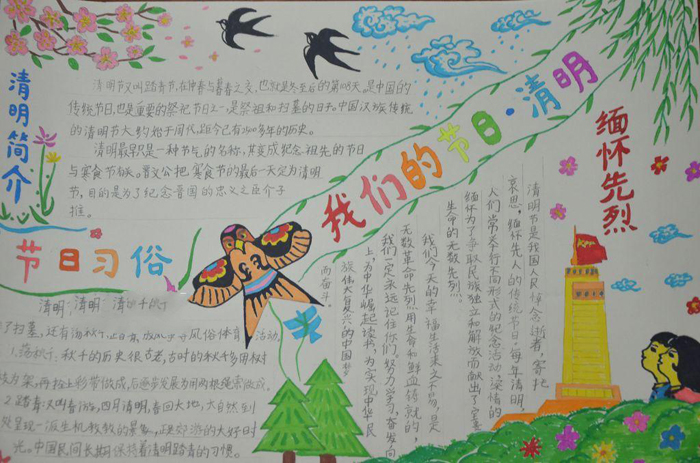 清明简介
清明节又叫踏青节,在仲春与暮春之交,也就是冬至后的第108天,是中国的
传统节日,也是重要的祭祀节日之一,是祭祖和扫墓的日子。中国汉族传统
的清明节大约始于周代,距今已有2500多年的历史。
清明最早只是一种节气的名称,其变成纪念祖先的节日
与寒食节有关。晋文公把寒食节的最后一天定为清明
节,目的是为了纪念晋国的忠义之臣介子
推。
我们的节日·清明
缅怀先烈
清明节是我国人民悼念逝者、寄托
哀思,缅怀先人的传统节日,每年清明,
人们常关于行不同形式的纪念活动,深情的
缅怀为了争取民族独立和解放而献出了宝贵
生命的无数先烈。
我们今天的幸福生活来之不易,是
无数革命先烈用生命和鲜血铸就的,
我们一定永远记住你们,努力学习,奋发向
上,为中华崛起读书,为实现中华民
族伟大复兴的中国梦
而奋斗。
节日习俗
清明 清明 清
了扫墓,还有 风俗体育活动。
1.荡秋千,秋千的历史很古老,古时的秋千多用树
枝为架,再拴上彩带做成,后逐步发展为用两根绳索做成。
2.踏青又叫春游,四月清明,春回大地,大自然到
处呈现一派生机勃勃的景象,正是郊游的大好时
光。中国民间长期保持着清明踏青的习惯。